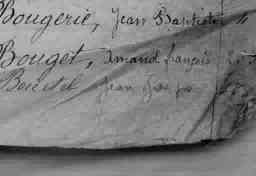 Bougerie, Jean Baptiste "
Bouget, Amand françois
Jean